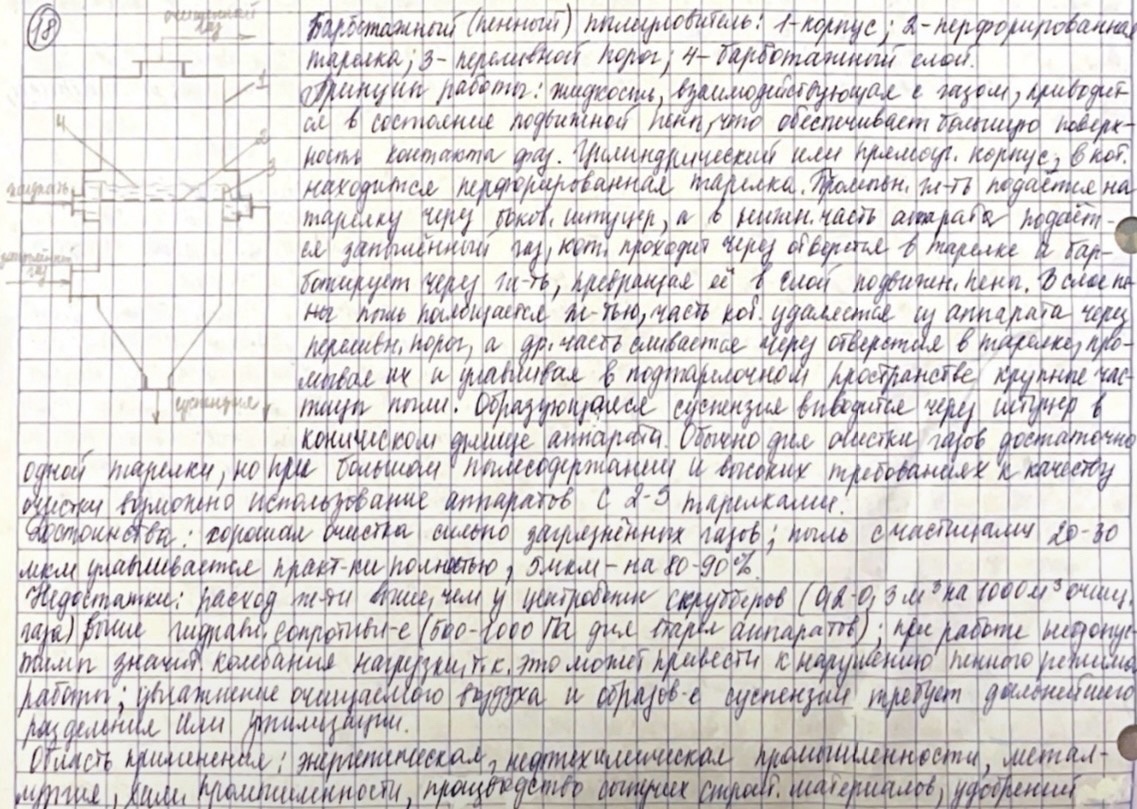 18
очищенный
газ
1
4
2
3
запылённый
газ
суспензия
Барботажный (пенный) пылеуловитель: 1-корпус; 2-перфорированная
тарелка; 3-переливной порог; 4-барботажный слой.
Принцип работы: жидкость, взаимодействующая с газом, приводит-
ся в состояние подвижной пены, что обеспечивает большую поверх-
ность контакта фаз. Цилиндрический или прямоуг. корпус, в кот.
находится перфорированная тарелка. Промывн. ж-ть подаётся на
тарелку через боков. штуцер, а в нижн. часть аппарата подаёт-
ся запылённый газ, кот. проходит через отверстия в тарелке и бар-
ботирует через ж-ть, превращая её в слой подвижн. пены. В слое пе-
ны пыль поглощается ж-тью, часть кот. удаляется из аппарата через
переливн. порог, а др. часть сливается через отверстия в тарелке, про-
мывая их и улавливая в подтарелочном пространстве крупные час-
тицы пыли. Образующаяся суспензия выводится через штуцер в
коническом днище аппарата. Обычно для очистки газов достаточно
одной тарелки, но при большом пылесодержании и высоких требованиях к качеству
очистки возможно использование аппаратов с 2-3 тарелками.
Достоинства: хорошая очистка сильно загрязнённых газов; пыль с частицами 20-30
мкм улавливается практ-ки полностью, 5мкм - на 80-90%.
Недостатки: расход ж-ти выше, чем у центробежн скрубберов (0,2-0,3 м³ на 1000 м³ очищ.
газа) выше гидравл. сопротивл-е (500-1000 Па для 1тарел аппаратов); при работе недопус-
тимы значит. колебания нагрузки, т.к. это может привести к нарушению пенного режима
работы; увлажнение очищаемого воздуха и образов-е суспензии требует дальнейшего
разделения или утилизации.
Область применения: энергетическая, нефтехимическая промышленности, метал-
лургия, хим. промышленности, производство сыпучих строит. материалов, удобрений